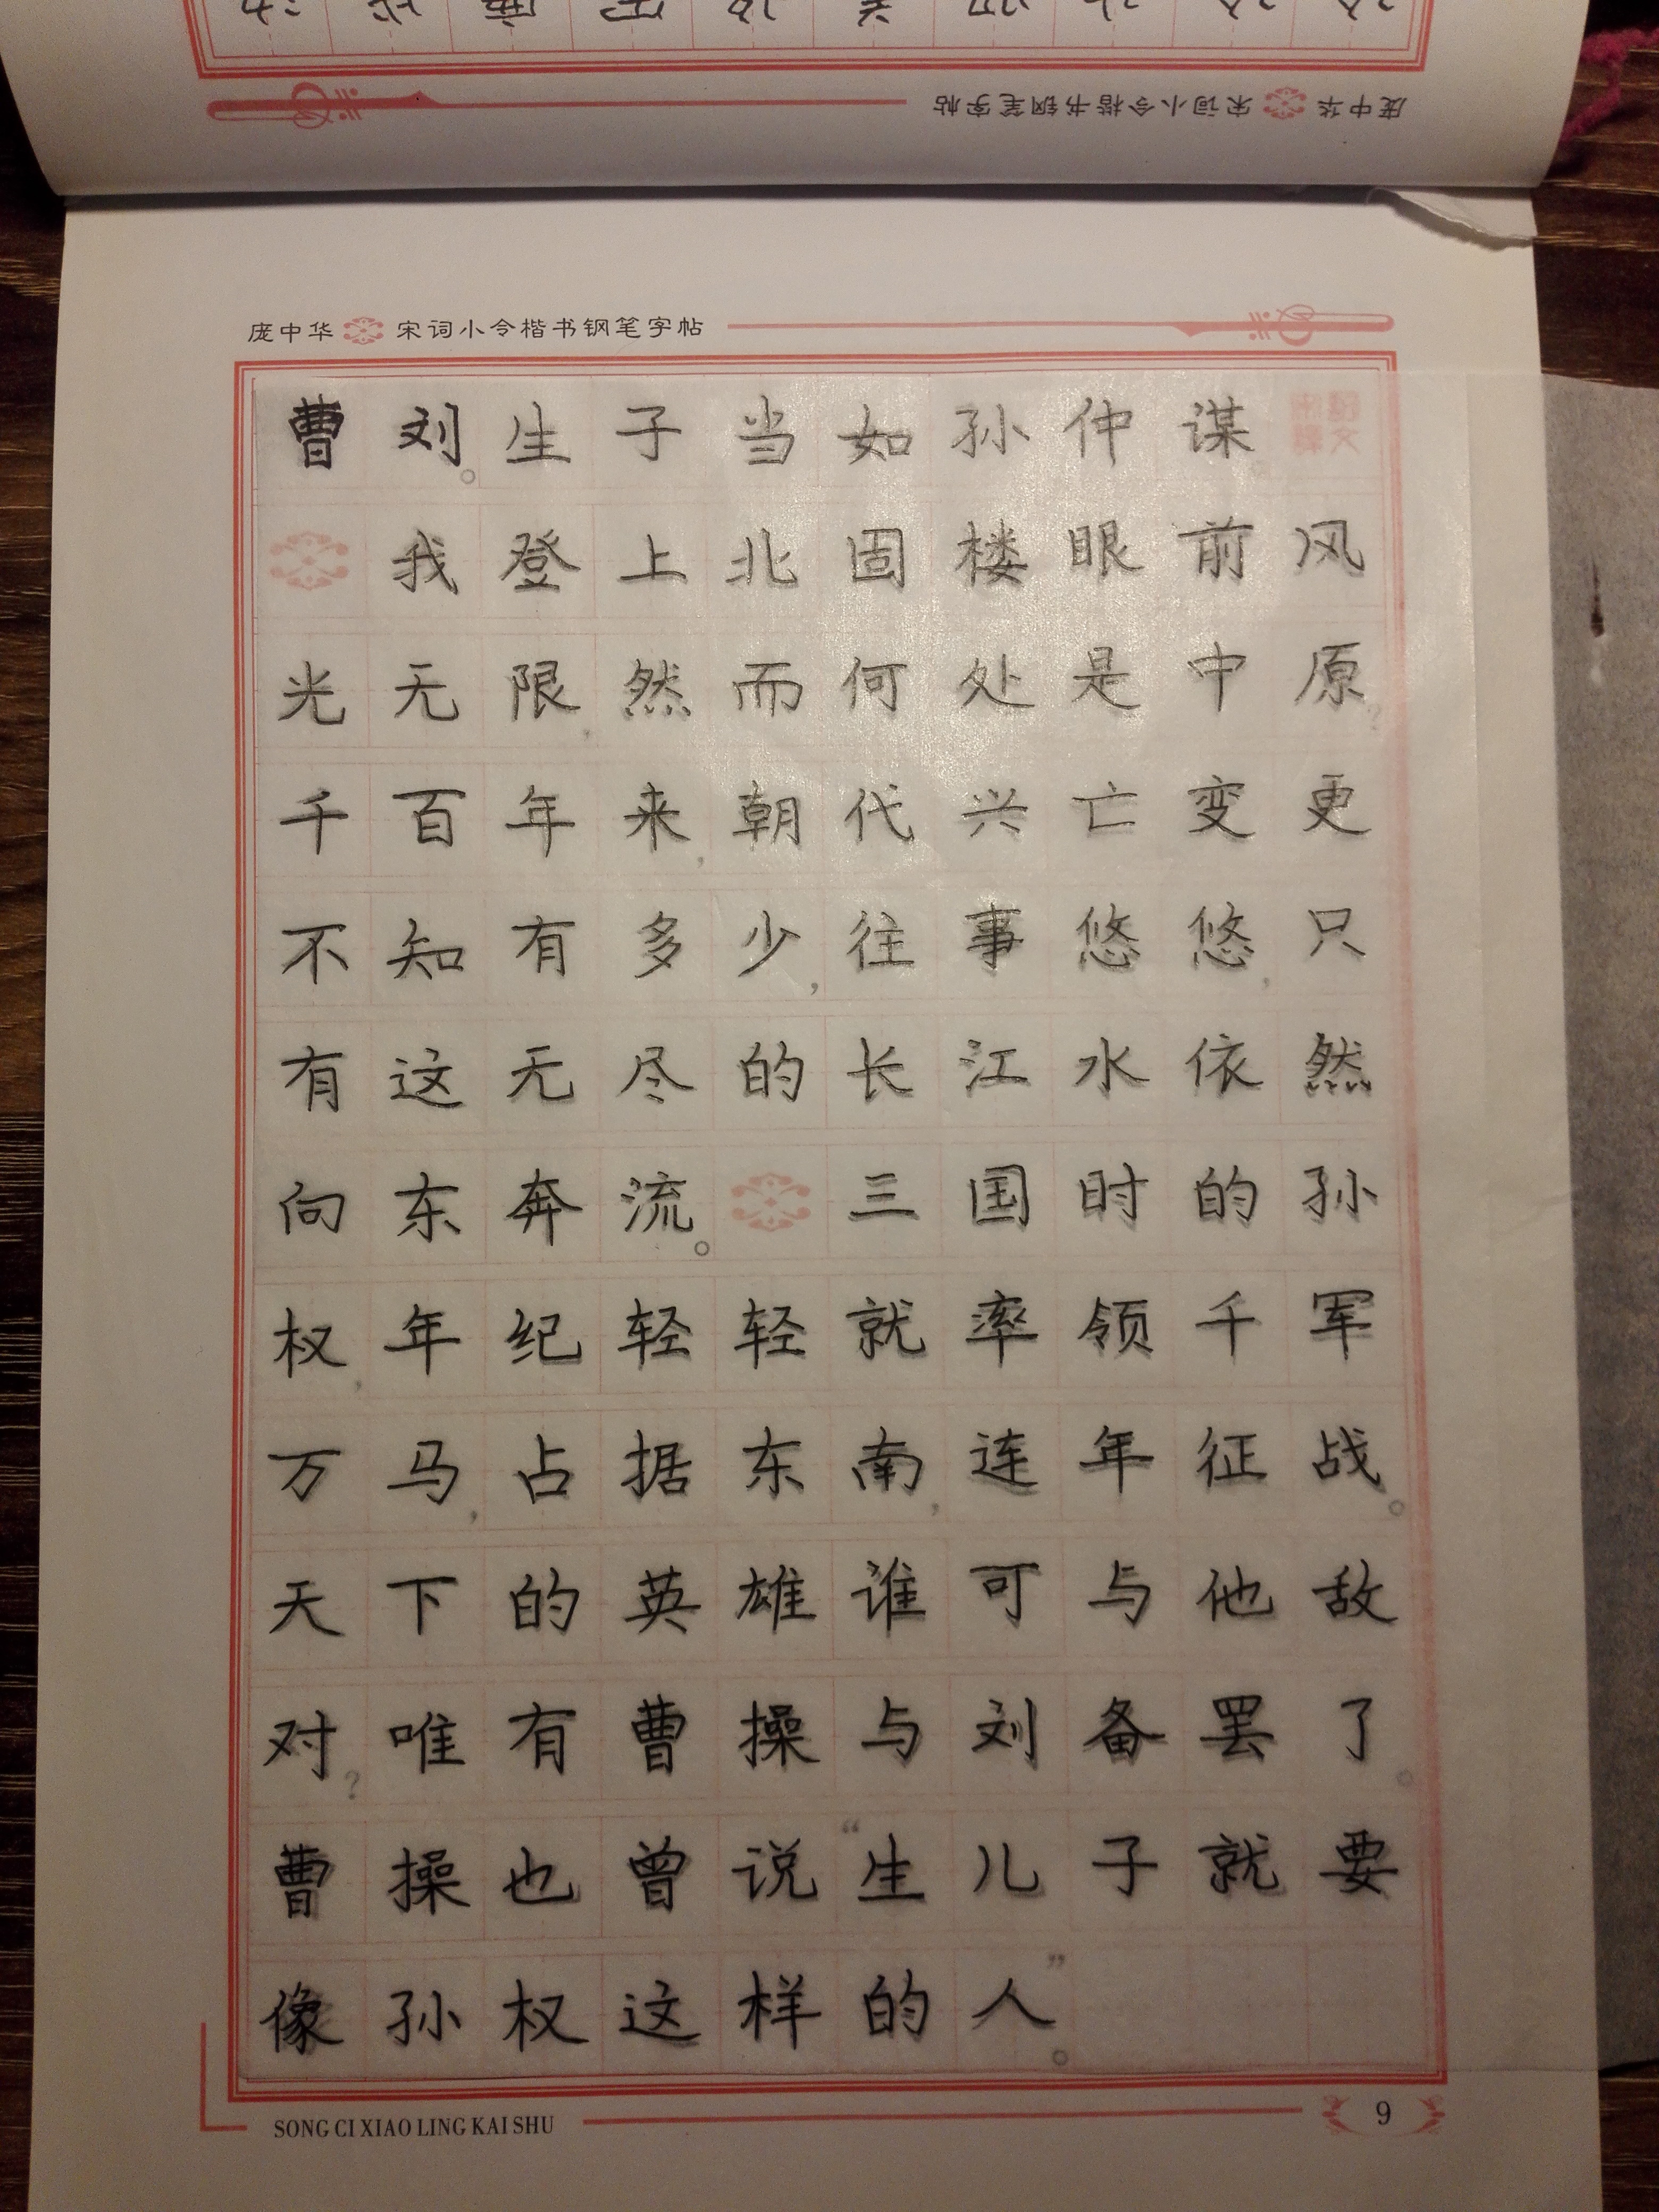 庞中华 宋词小令楷书钢笔字帖
庞中华 宋词小令楷书钢笔字帖
曹刘。生子当如孙仲谋。
我登上北固楼眼前风
光无限,然而何处是中原?
千百年来,朝代兴亡变更
不知有多少,往事悠悠,只
有这无尽的长江水依然
向东奔流。三国时的孙
权,年纪轻轻就率领千军
万马,占据东南,连年征战。
天下的英雄谁可与他敌
对?唯有曹操与刘备罢了。
曹操也曾说“生儿子就要
像孙权这样的人”。
SONG CI XIAO LING KAI SHU 9